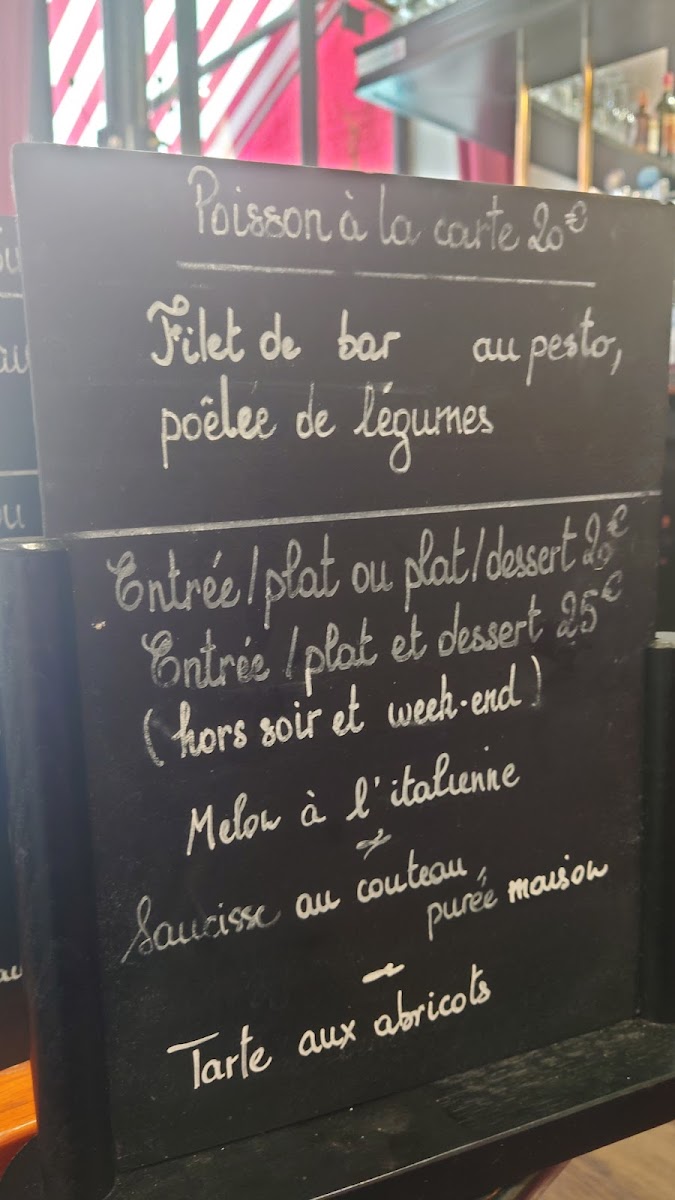 Poisson à la carte 20€
Filet de bar au pesto,
poêlée de légumes
Entrée/plat ou plat/dessert 20€
Entrée/plat et dessert 25€
(hors soir et week-end)
Melon à l'italienne
Saucisse au couteau,
purée maison
Tarte aux abricots